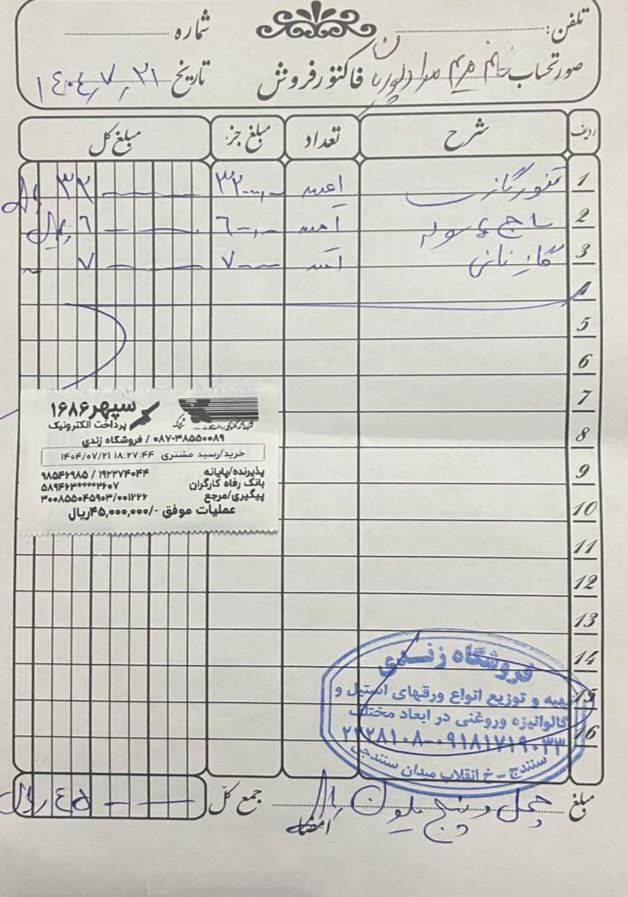 تلفن: شماره
صورتحساب خانم مریم مرادپوریان فاکتور فروش تاریخ ۱۴۰۴٫۷٫۲۱
ردیف شرح تعداد مبلغ جزء مبلغ کل
1 تنور گازی ۱ عدد ۳۲--- ۳۲ --- ریال
2 ساج ۱ عدد ۶--- ۶ --- ریال
3 ۱ عدد ۷--- ۷ ---
4
5
6
7
8
9
10
11
12
13
14
15
16
سپهر ۱۶۸۶
پرداخت الکترونیک
۰۸۷-۳۸۵۵۰۰۸۹ / فروشگاه زندی
خرید/رسید مشتری ۱۸:۲۷:۴۴ ۱۴۰۴/۰۷/۲۱
پذیرنده/پایانه ۱۹۲۲۷۴۰۴۴ / ۹۸۵۴۶۹۸۵
بانک رفاه کارگران ۵۸۹۴۶۳****۲۶۰۷
پیگیری/مرجع ۳۰۰۸۵۵۰۴۵۹۰۳/۰۰۱۲۲۶
عملیات موفق -/۴۵,۰۰۰,۰۰۰ریال
فروشگاه زندی
تهیه و توزیع انواع ورقهای استیل و
گالوانیزه وروغنی در ابعاد مختلف
۲۲۲۸۱۰۸-۰۹۱۸۱۷۱۹۰۳۳
سنندج - خ انقلاب میدان سنندجی
مبلغ چهل و پنج میلیون ریال جمع کل ۴۵ --- ریال
امضاء